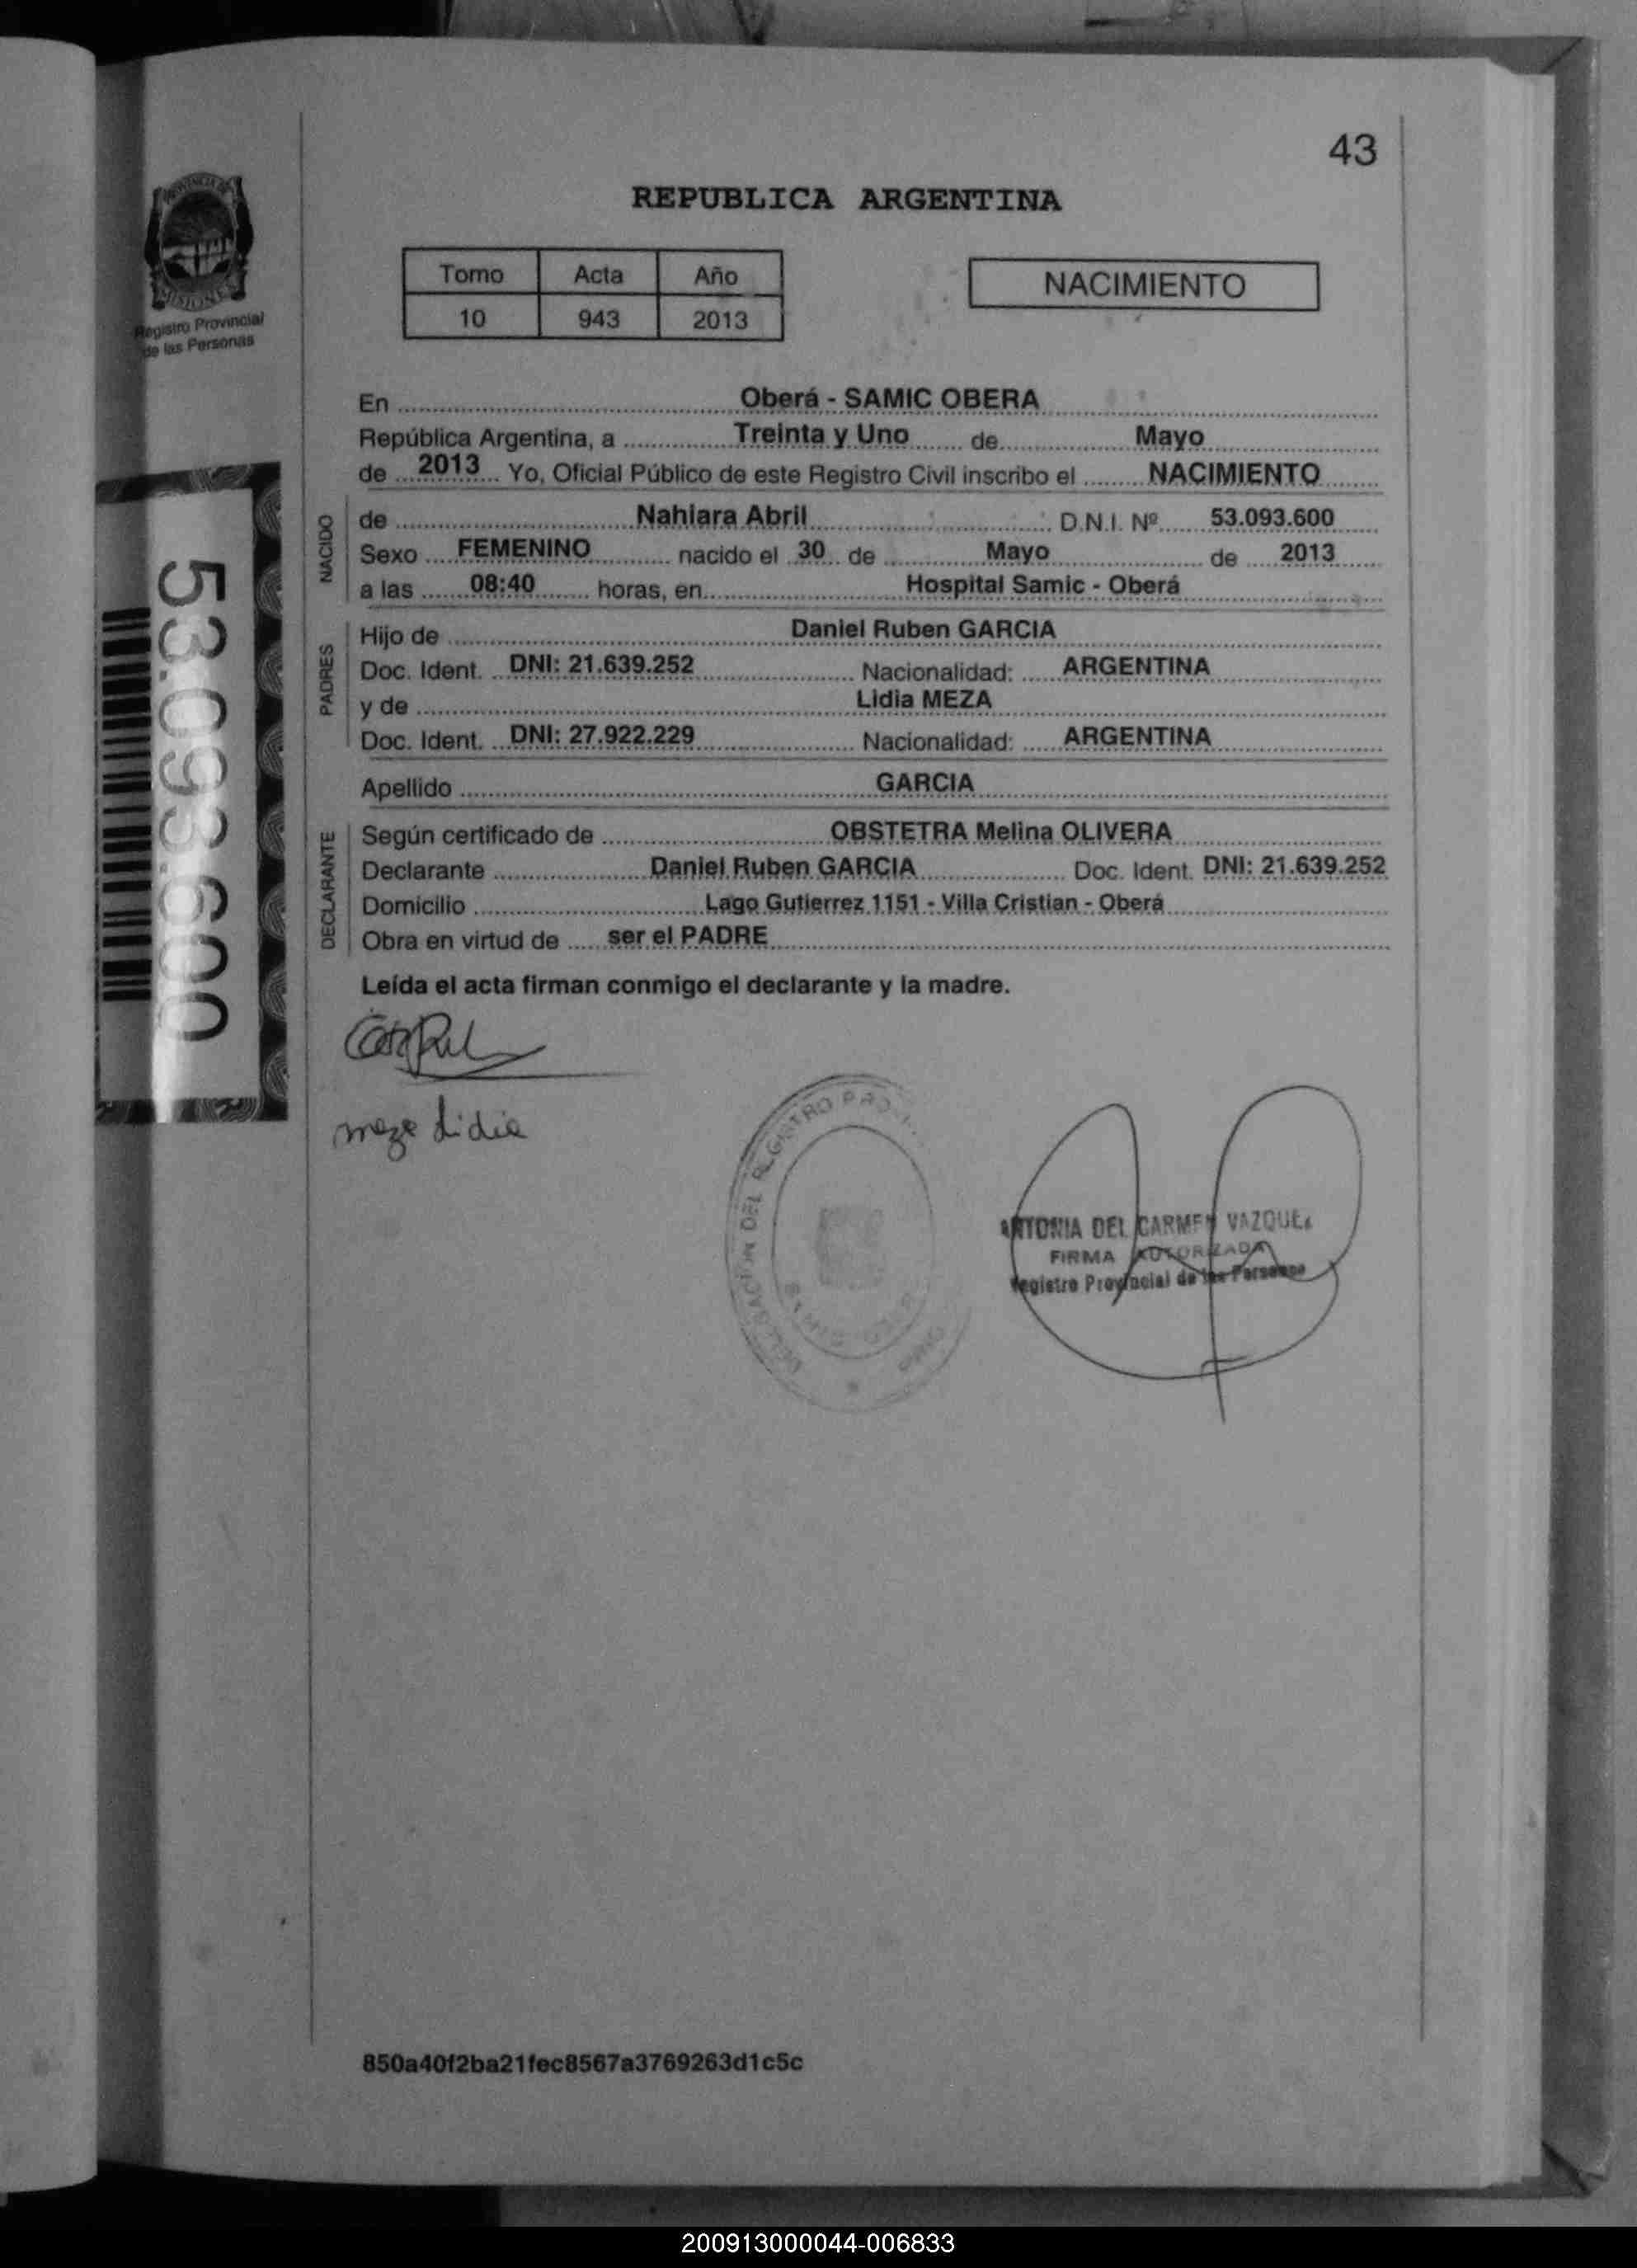 43
REPUBLICA ARGENTINA
PROVINCIA DE
MISIONES
Registro Provincial
de las Personas
Tomo Acta Año
10 943 2013
NACIMIENTO
En Oberá - SAMIC OBERA
República Argentina, a Treinta y Uno de Mayo
de 2013 Yo, Oficial Público de este Registro Civil inscribo el NACIMIENTO
NACIDO
de Nahiara Abril D.N.I. Nº 53.093.600
Sexo FEMENINO nacido el 30 de Mayo de 2013
a las 08:40 horas, en Hospital Samic - Oberá
PADRES
Hijo de Daniel Ruben GARCIA
Doc. Ident. DNI: 21.639.252 Nacionalidad: ARGENTINA
y de Lidia MEZA
Doc. Ident. DNI: 27.922.229 Nacionalidad: ARGENTINA
Apellido GARCIA
DECLARANTE
Según certificado de OBSTETRA Melina OLIVERA
Declarante Daniel Ruben GARCIA Doc. Ident. DNI: 21.639.252
Domicilio Lago Gutierrez 1151 - Villa Cristian - Oberá
Obra en virtud de ser el PADRE
Leída el acta firman conmigo el declarante y la madre.
53.093.600
meza Lidia
DELEGACION DEL REGISTRO
ANTONIA DEL CARMEN VAZQUEZ
FIRMA AUTORIZADA
Registro Provincial de las Personas
850a40f2ba21fec8567a3769263d1c5c
200913000044-006833